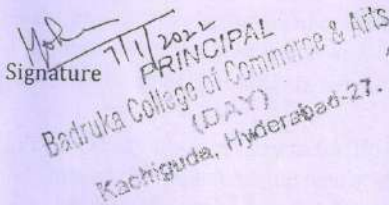 7/1/2022
Signature
PRINCIPAL
Badruka College of Commerce & Arts
(DAY)
Kachiguda, Hyderabad-27.